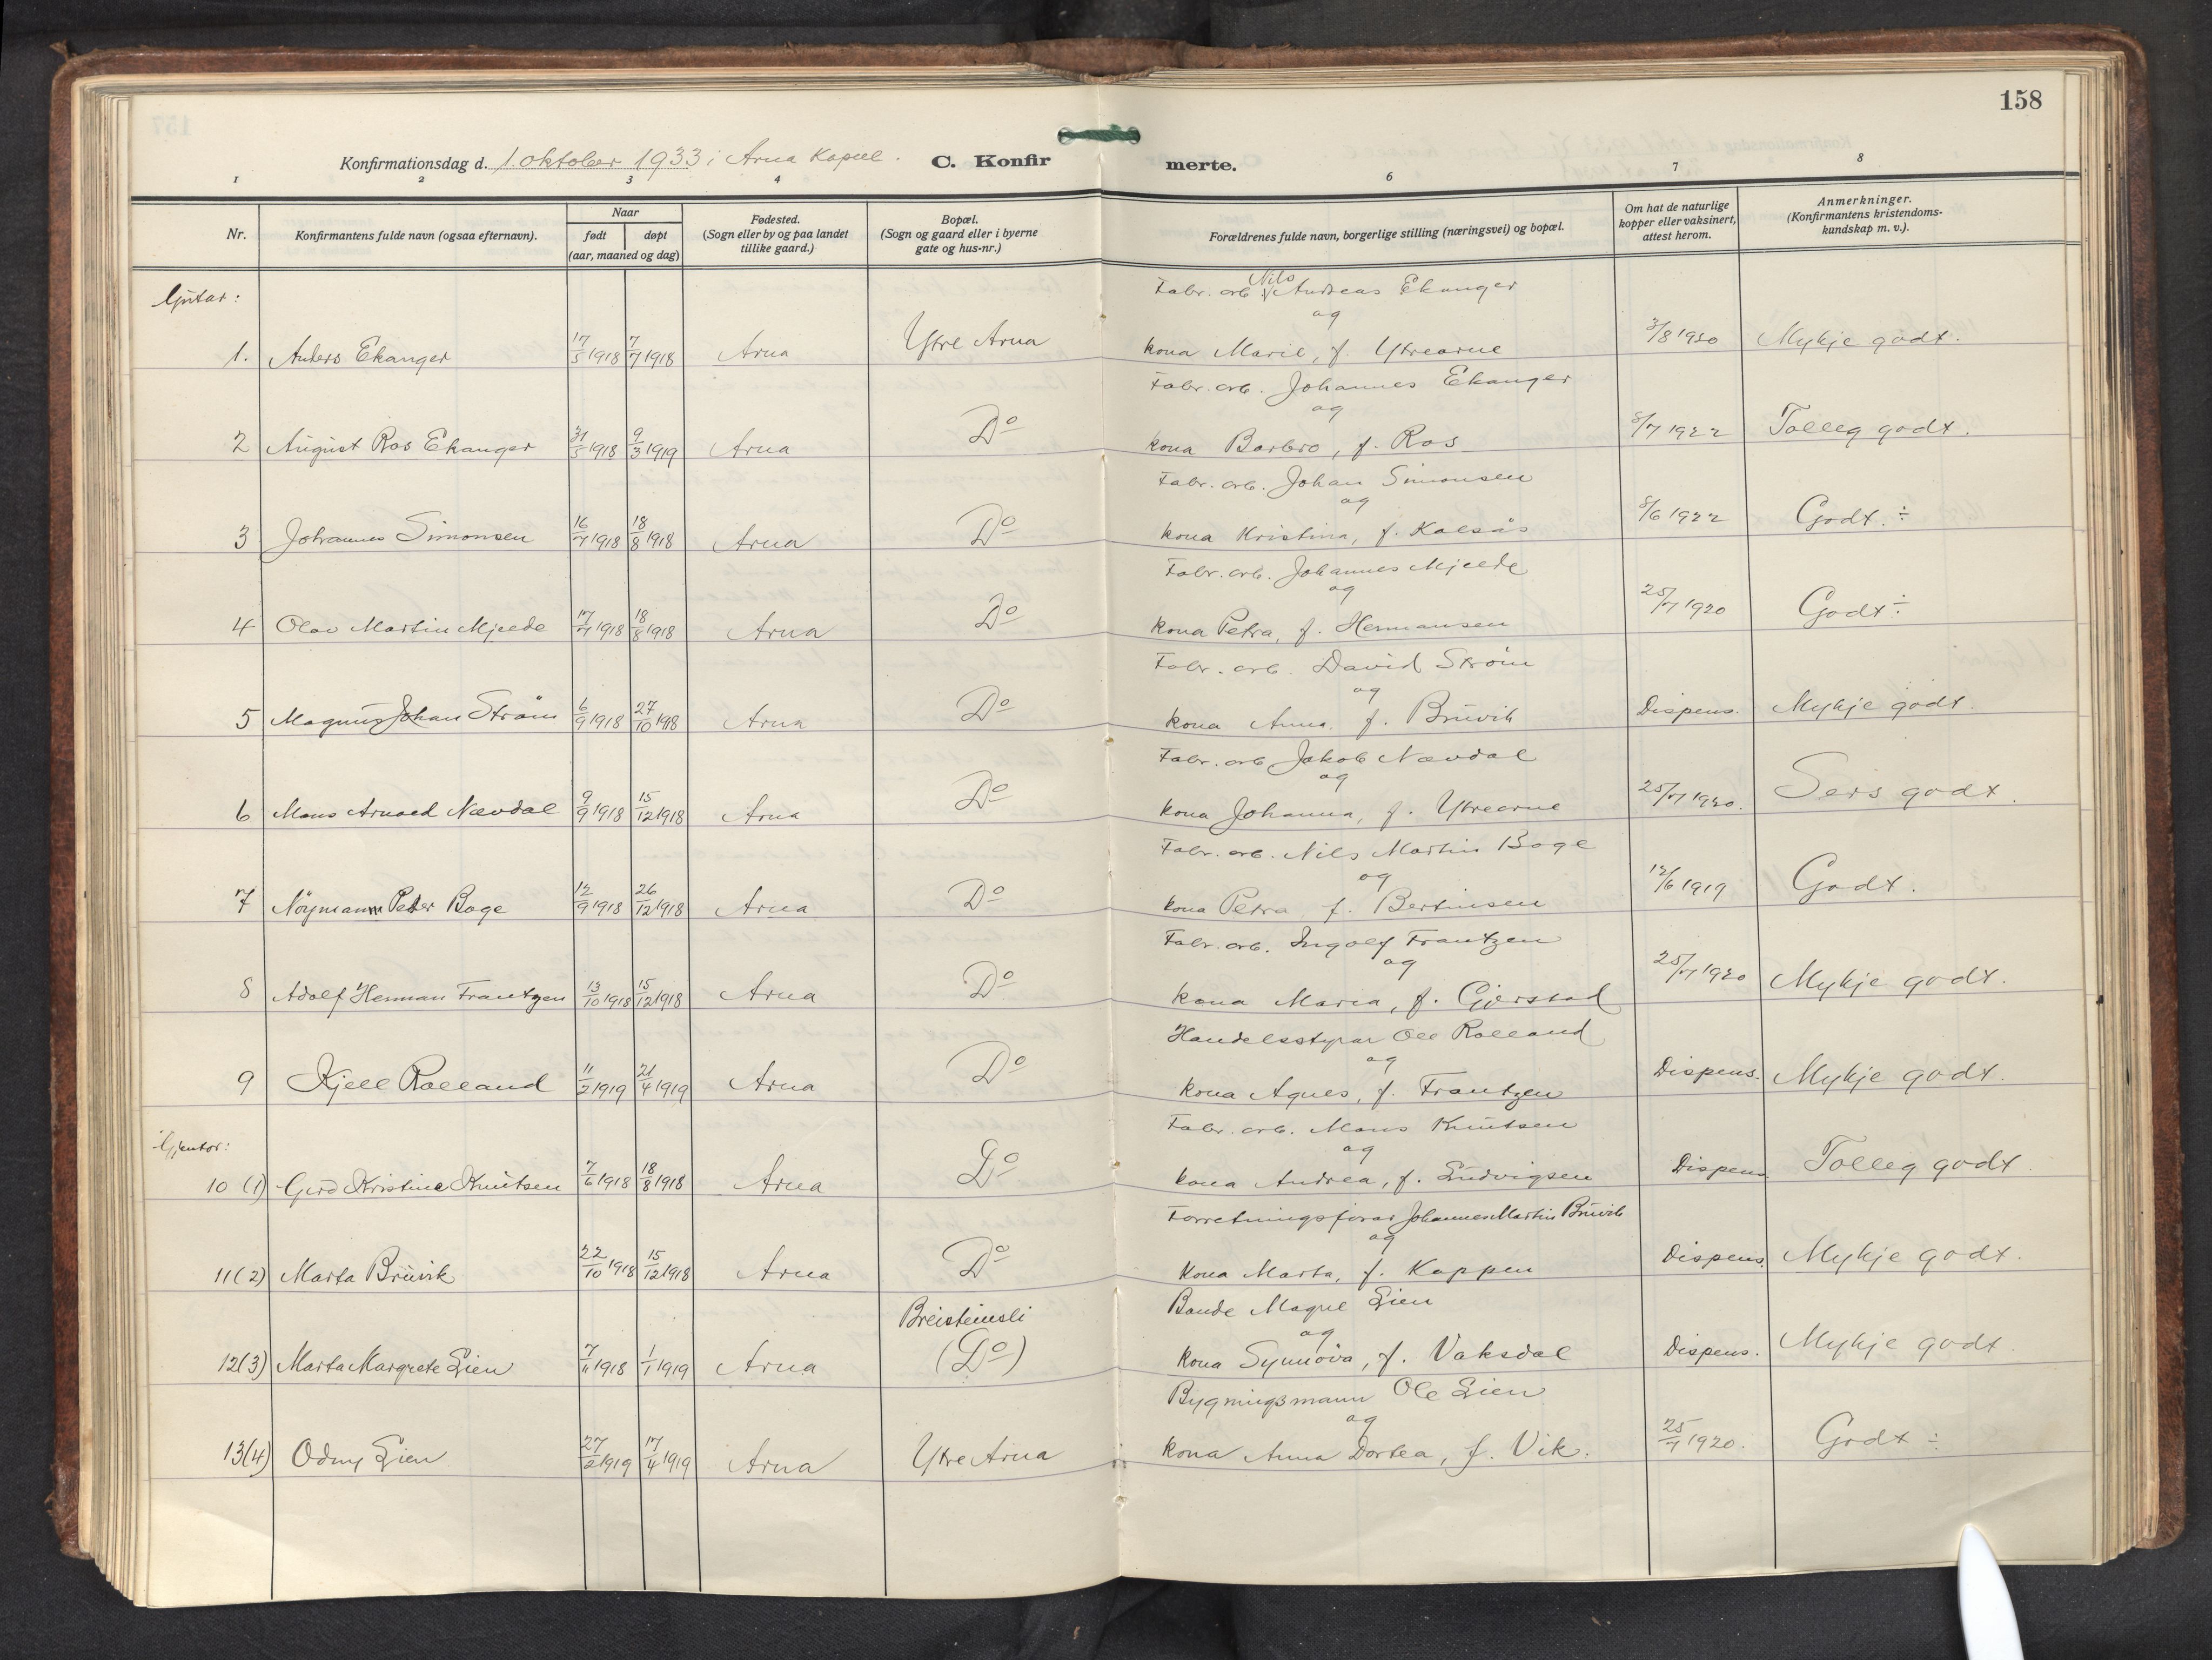 158
Konfirmationsdag d. 1. oktober 1933 i Arna Kapell. C. Konfirmerte.
1 2 3 4 6 7 8
Nr. Konfirmantens fulde navn (ogsaa efternavn). Naar født døpt (aar, maaned og dag) Fødested. (Sogn eller by og paa landet tillike gaard.) Bopæl. (Sogn og gaard eller i byerne gate og hus-nr.) Forældrenes fulde navn, borgerlige stilling (næringsvei) og bopæl. Om hat de naturlige kopper eller vaksinert, attest herom. Anmerkninger. (Konfirmantens kristendoms-kundskap m. v.).
Gutar:
Fabr. arb. Nils Andreas Ekanger
og
1. Anders Ekanger 17/5 1918 7/7 1918 Arna Ytre Arna kona Marie, f. Ytrearne 3/8 1920 Mykje godt.
Fabr. arb. Johannes Ekanger
og
2 August Ros Ekanger 31/5 1918 9/3 1919 Arna Do kona Barbro, f. Ros 8/7 1922 Tolleg godt.
Fabr. arb. Johan Simonsen
og
3 Johannes Simonsen 16/7 1918 18/8 1918 Arna Do kona Kristina, f. Kalsås 8/6 1922 Godt. ÷
Fabr. arb. Johannes Mjelde
og
4 Olav Martin Mjelde 17/7 1918 18/8 1918 Arna Do kona Petra, f. Hermansen 25/7 1920 Godt ÷
Fabr. arb. David Strøm
og
5 Magnus Johan Strøm 6/9 1918 27/10 1918 Arna Do kona Anna f. Bruvik Dispens. Mykje godt.
Fabr. arb. Jakob Nævdal
og
6 Mons Arnold Nævdal 9/9 1918 15/12 1918 Arna Do kona Johanna, f. Ytrearne 25/7 1920. Sers godt.
Fabr. arb. Nils Martin Boge
og
7 Nöymann Peter Boge 12/9 1918 26/12 1918 Arna Do kona Petra f. Bertinsen 12/6 1919 Godt.
Fabr. arb. Ingolf Frantzen
og
8 Adolf Herman Frantzen 13/10 1918 15/12 1918 Arna Do kona Maria, f. Gjerstad 25/7 1920 Mykje godt.
Handelsstyrar Ole Rolland
og
9 Kjell Rolland 11/2 1919 21/4 1919 Arna Do kona Agnes, f. Frantzen Dispens. Mykje godt.
Gjentor:
Fabr. arb. Mons Knutsen
og
10 (1) Gerd Kristine Knutsen 7/6 1918 18/8 1918 Arna Do kona Andrea, f. Ludvigsen Dispens. Tolleg godt.
Forretningsførar Johannes Martin Bruvik
og
11 (2) Marta Bruvik 22/10 1918 15/12 1918 Arna Do kona Marta, f. Koppen Dispens. Mykje godt.
Breisteinsli Bonde Magne Lien
og
12 (3) Marta Margrete Lien 7/11 1918 1/1 1919 Arna (Do) kona Synnöva, f. Vaksdal Dispens. Mykje godt.
Bygningsmann Ole Lien
og
13 (4) Odny Lien 27/2 1919 17/4 1919 Arna Ytre Arna kona Anna Dortea, f. Vik. 25/7 1920. Godt ÷